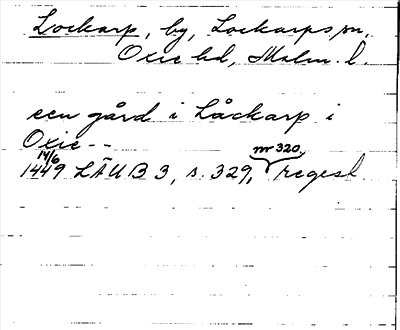 Lockarp, by, Lockarps sn,
Oxie hd, Malm. l.
een gård i Låckarp i
Oxie --
14/6 nr 320,
1449 LÄUB 3, s. 329, regest.